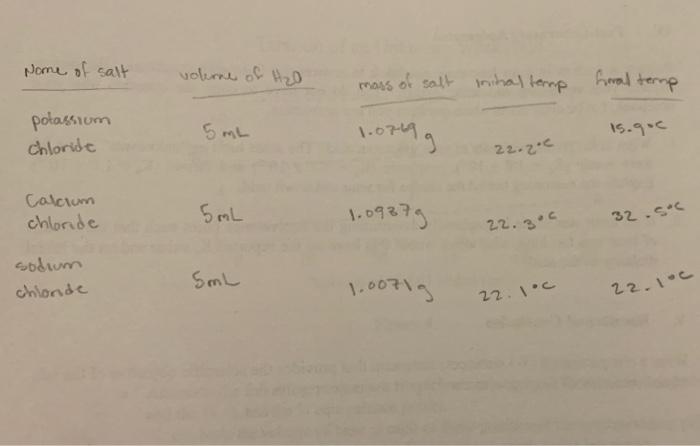 Name of salt volume of H2O mass of salt initial temp final temp
potassium
chloride 5 mL 1.0769 g 22.2°C 15.9°C
Calcium
chloride 5mL 1.0937g 22.3°C 32.5°C
sodium
chloride 5mL 1.0071g 22.1°C 22.1°C